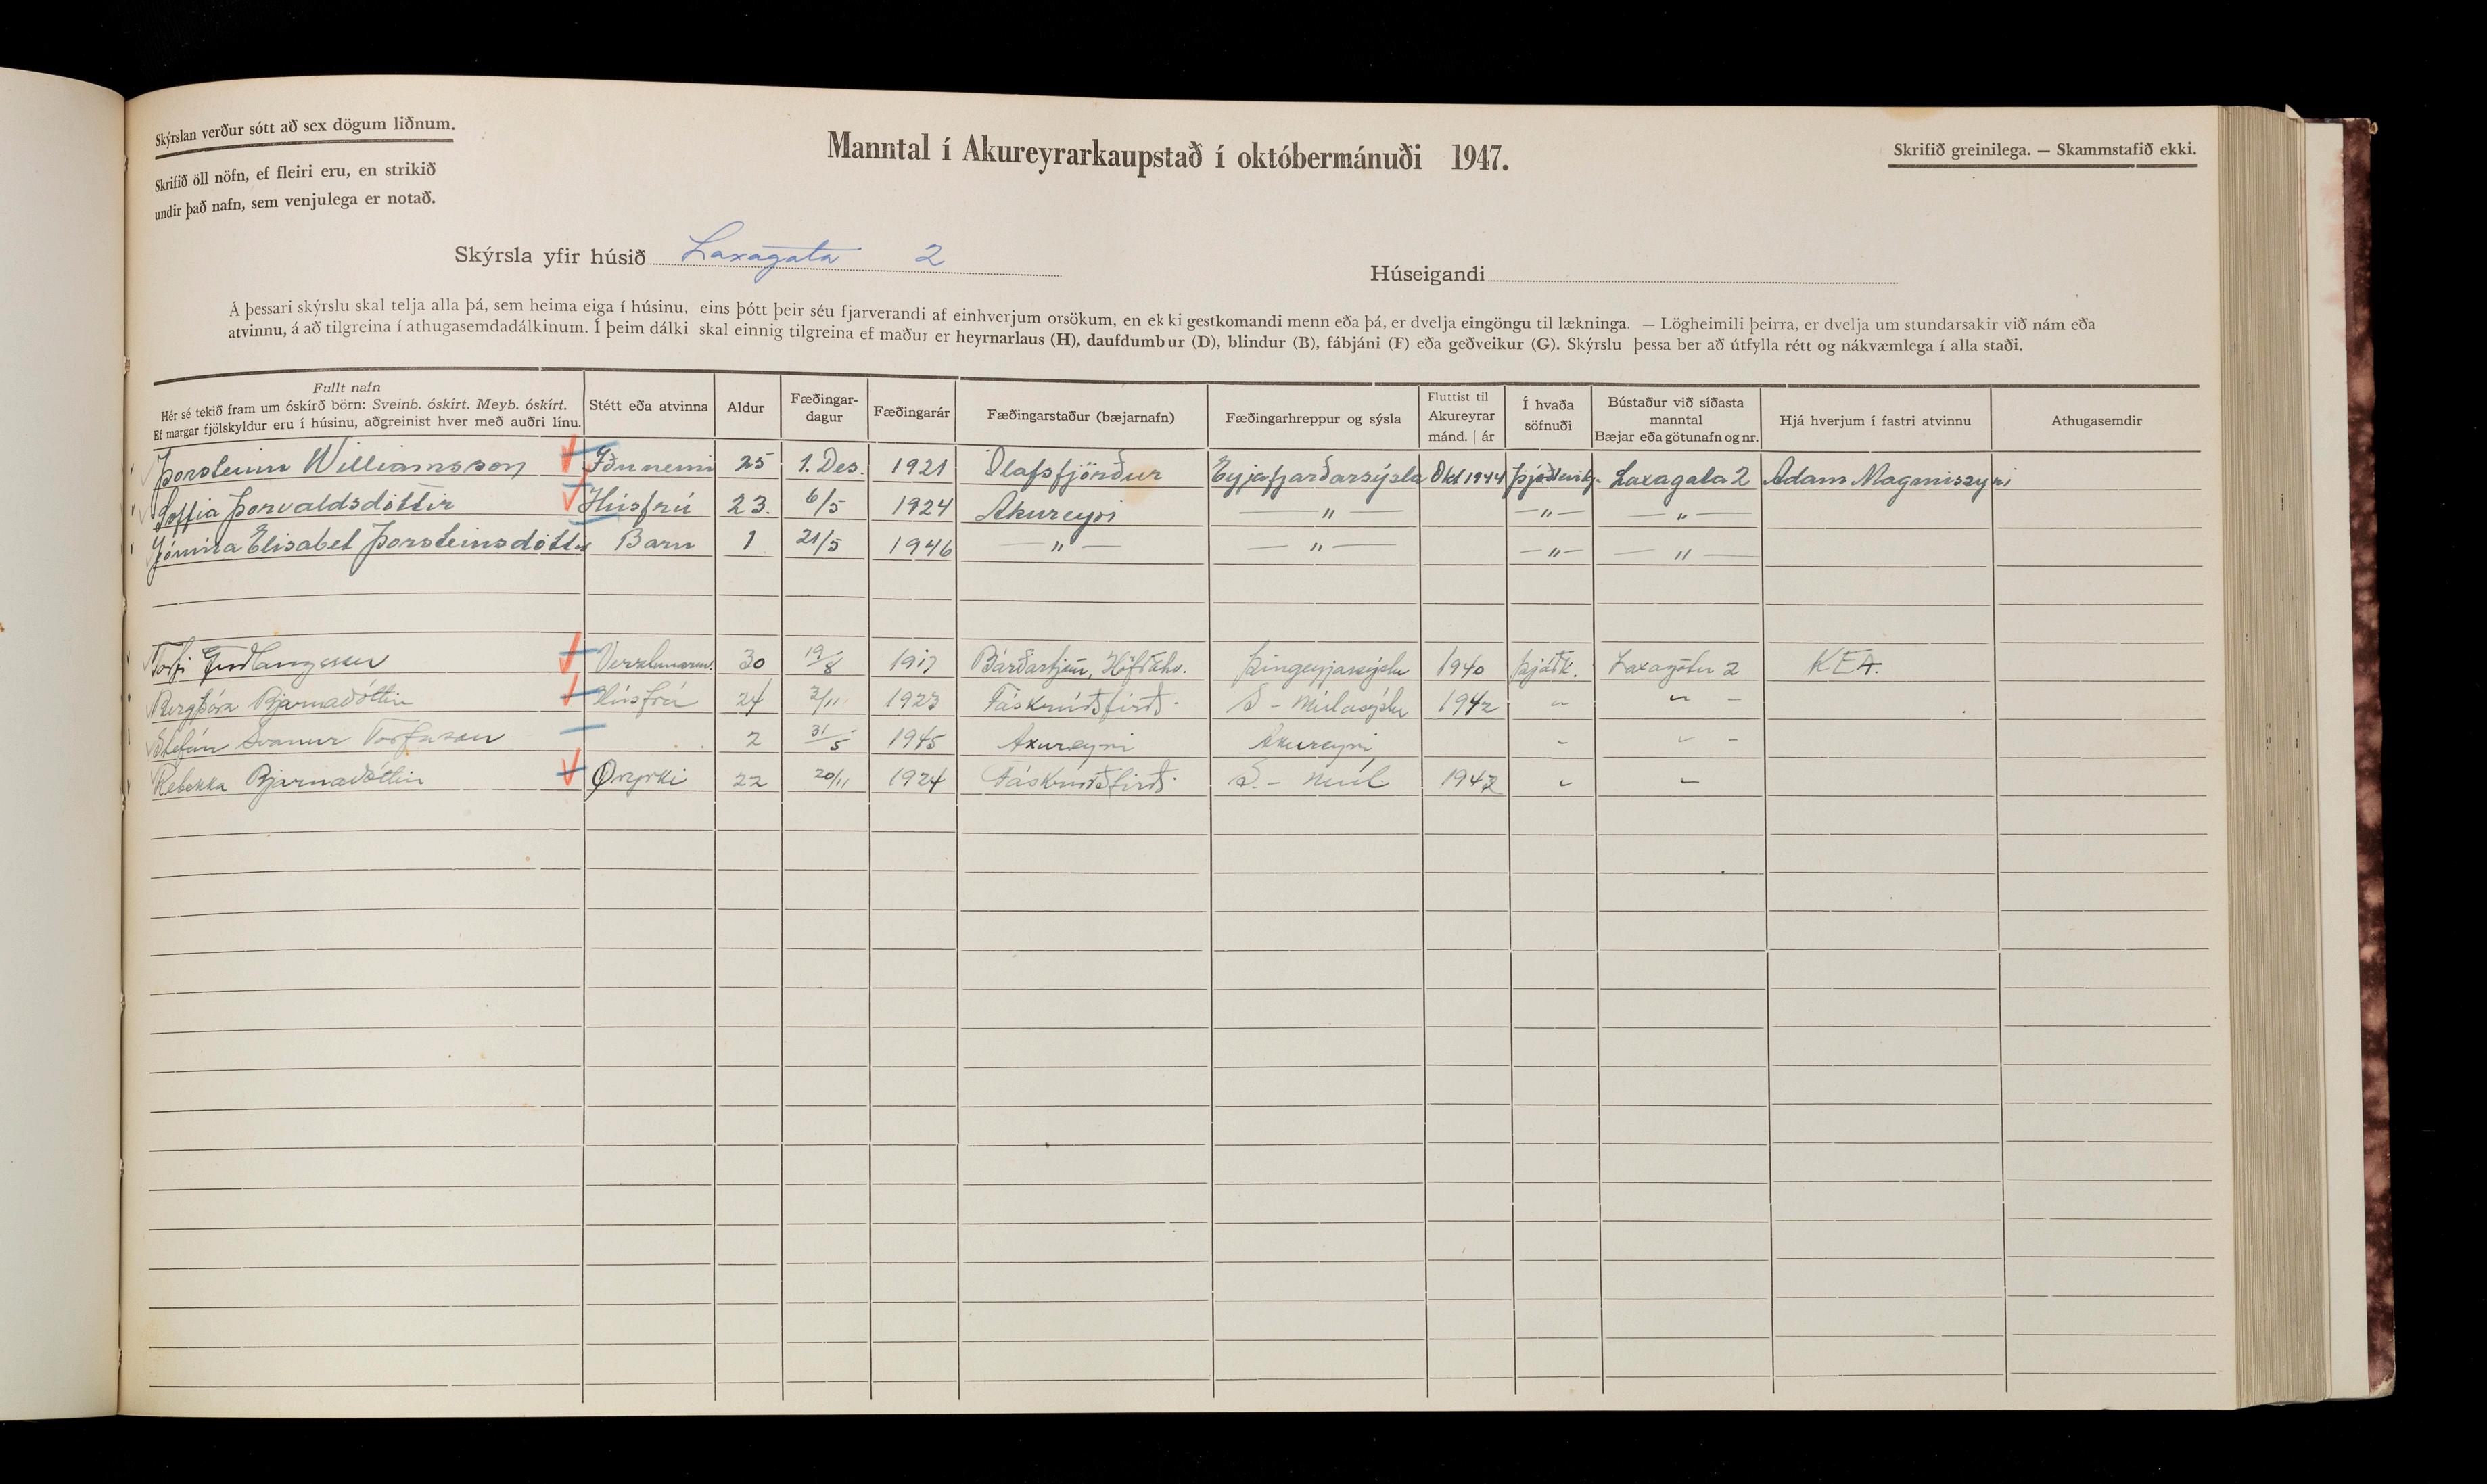 Skýrslan verður sótt að sex dögum liðnum.
Skrifið öll nöfn, ef fleiri eru, en strikið
undir það nafn, sem venjulega er notað.
Manntal í Akureyrarkaupstað í októbermánuði 1947.
Skrifið greinilega. — Skammstafið ekki.
Skýrsla yfir húsið Laxagata 2
Húseigandi
Á þessari skýrslu skal telja alla þá, sem heima eiga í húsinu, eins þótt þeir séu fjarverandi af einhverjum orsökum, en ekki gestkomandi menn eða þá, er dvelja eingöngu til lækninga. — Lögheimili þeirra, er dvelja um stundarsakir við nám eða
atvinnu, á að tilgreina í athugasemdadálkinum. Í þeim dálki skal einnig tilgreina ef maður er heyrnarlaus (H), daufdumbur (D), blindur (B), fábjáni (F) eða geðveikur (G). Skýrslu þessa ber að útfylla rétt og nákvæmlega í alla staði.
Fullt nafn
Hér sé tekið fram um óskírð börn: Sveinb. óskírt. Meyb. óskírt.
Ef margar fjölskyldur eru í húsinu, aðgreinist hver með auðri línu.
Stétt eða atvinna
Aldur
Fæðingar-
dagur
Fæðingarár
Fæðingarstaður (bæjarnafn)
Fæðingarhreppur og sýsla
Fluttist til
Akureyrar
mánd. | ár
Í hvaða
söfnuði
Bústaður við síðasta
manntal
Bæjar eða götunafn og nr.
Hjá hverjum í fastri atvinnu
Athugasemdir
Þorsteinn Williamsson Iðnnemi 25 1. Des. 1921 Ólafsfjörður Eyjafjarðarsýsla Okt 1944 Laxagata 2 Adam Magnússyni
Soffia Þorvaldsdóttir Húsfrú 23. 6/5 1924 Akureyri — " — — " — — " — — " —
Jómína Elisabet Þorsteinsdóttir Barn 1 21/5 1946 — " — — " — — " — — " —
Torfi Guðlaugsson Verzlunarm. 30 19/8 1917 Höfðahv. Þingeyjarsýslu 1940 Þjóðk. Laxagötu 2 KEA.
Bergþóra Bjarnadóttir Húsfrú 24 2/11 1923 Fáskrúðsfirði S-Múlasýslu 1942 " " -
Stefán Svanur Torfason 2 31/5 1945 Akureyri Akureyri - " -
Rebekka Bjarnadóttir Öryrki 22 20/11 1924 Fáskrúðsfirði S.-Múl. 1942 " "